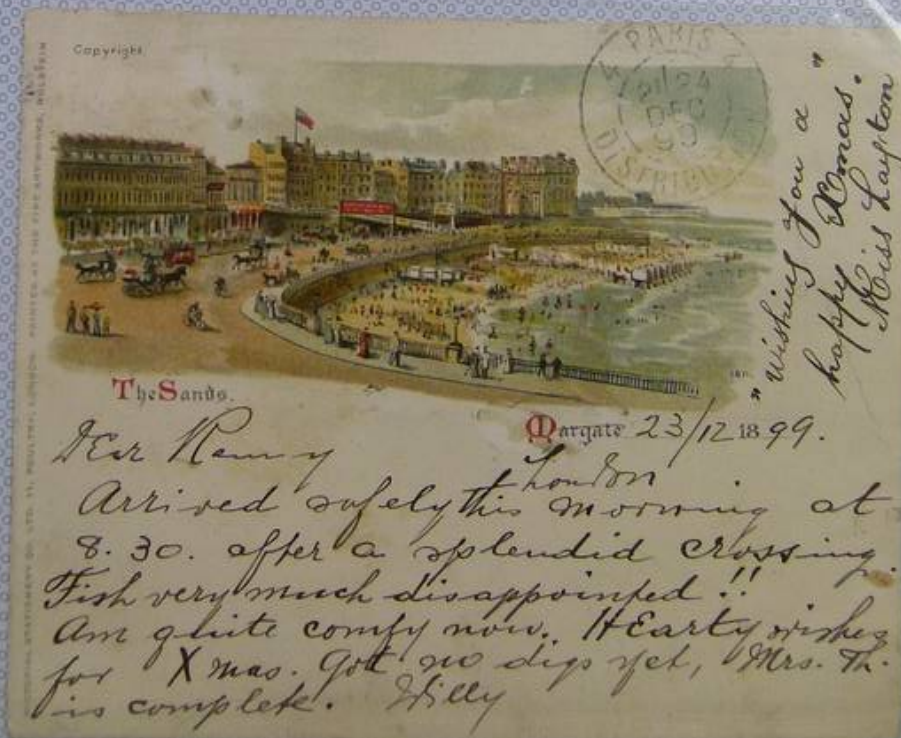 Copyright.
PARIS
21 24
DEC
99
DISTRIBUT
"Wishing you a
happy Xmas."
Miss Layton
The Sands.
Margate 23/12 1899.
London
Dear
Arrived safely this morning at
8.30. after a splendid crossing.
Fish very much disappointed!!
Am quite comfy now. HEarty wishes
for Xmas. Got no digs yet, Mrs. Th.
is complete. Willy